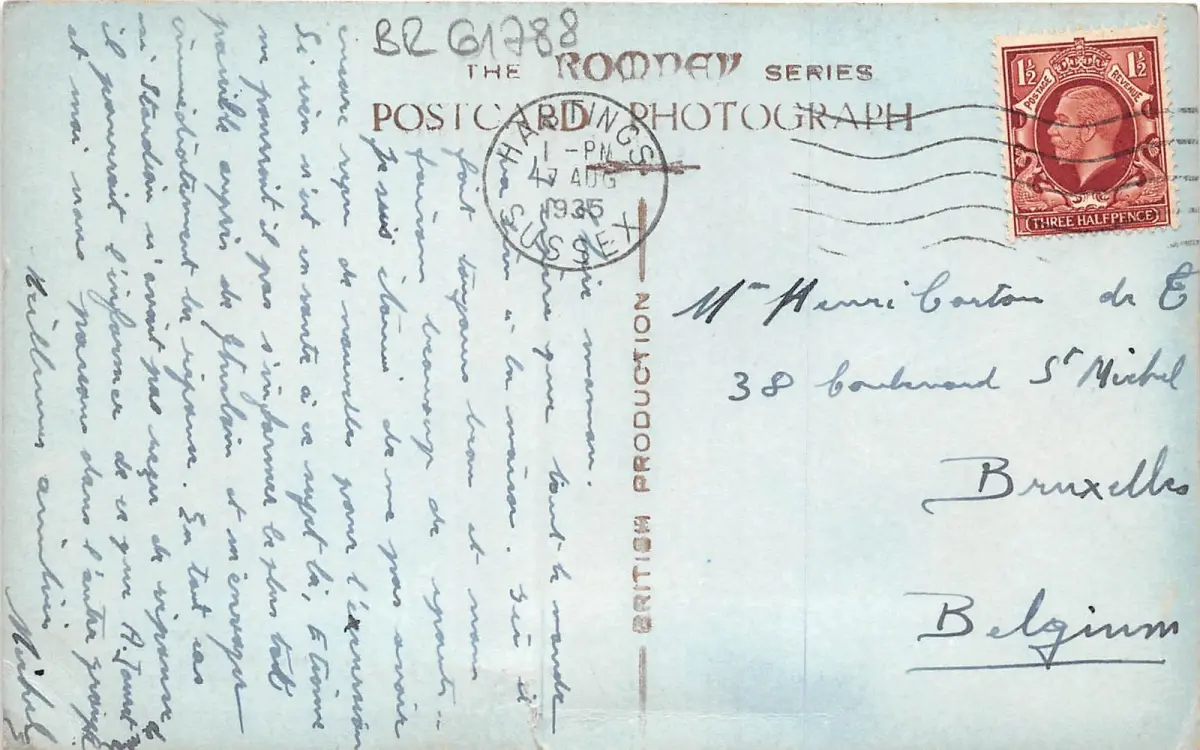 BR G1788
THE ROMNEY SERIES
POSTCARD PHOTOGRAPH
HASTINGS
1 - PM
7 AUG
1935
SUSSEX
1½ 1½
POSTAGE REVENUE
THREE HALFPENCE
BRITISH PRODUCTION
Mr Henri Carton de
38 boulevard St Michel
Bruxelles
Belgium
maman.
que tout le monde
à la maison. Ici il
fait toujours beau et nous
faisons beaucoup de
Je suis étonné de ne pas avoir
encore reçu de nouvelles pour l'excursion
Si rien n'est en route à ce sujet là, Etienne
ne pourrait il pas s'informer le plus tôt
possible auprès de Ghislain et m'envoyer
immédiatement la réponse. En tout cas
si n'avait pas reçu de réponse
il pourrait l'informer de ce que A.
et moi nous passons dans l'autre groupe
amitiés
Michel